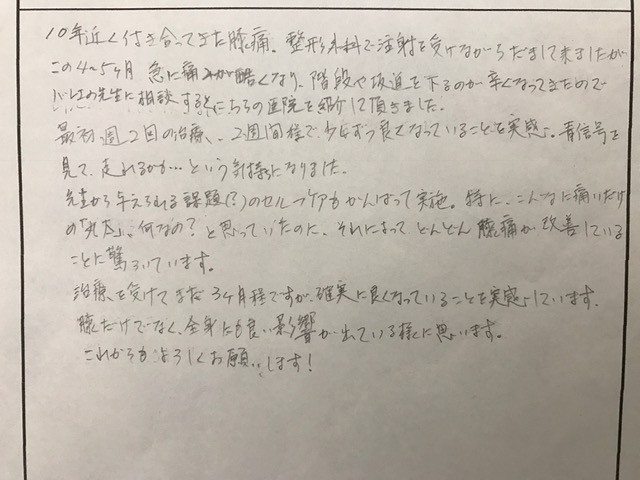 10年近く付き合ってきた膝痛。整形外科で注射を受けながらだまして来ましたが
この4〜5ヶ月 急に痛みが酷くなり、階段や坂道を下るのが辛くなってきたので
バレエの先生に相談するとこちらの医院を紹介して頂きました。
最初週2回の治療、2週間程で少しずつ良くなっていることを実感。青信号を
見て、走れるかも…という気持ちになりました。
先生から与えられる課題(?)のセルフケアもがんばって実施。特に、こんなに痛いだけ
の「丸太」、何なの?と思っていたのに、それによってどんどん膝痛が改善している
ことに驚いています。
治療を受けてまだ3ヶ月程ですが、確実に良くなっていることを実感しています。
膝だけでなく、全身にも良い影響が出ている様に思います。
これからもよろしくお願いします!